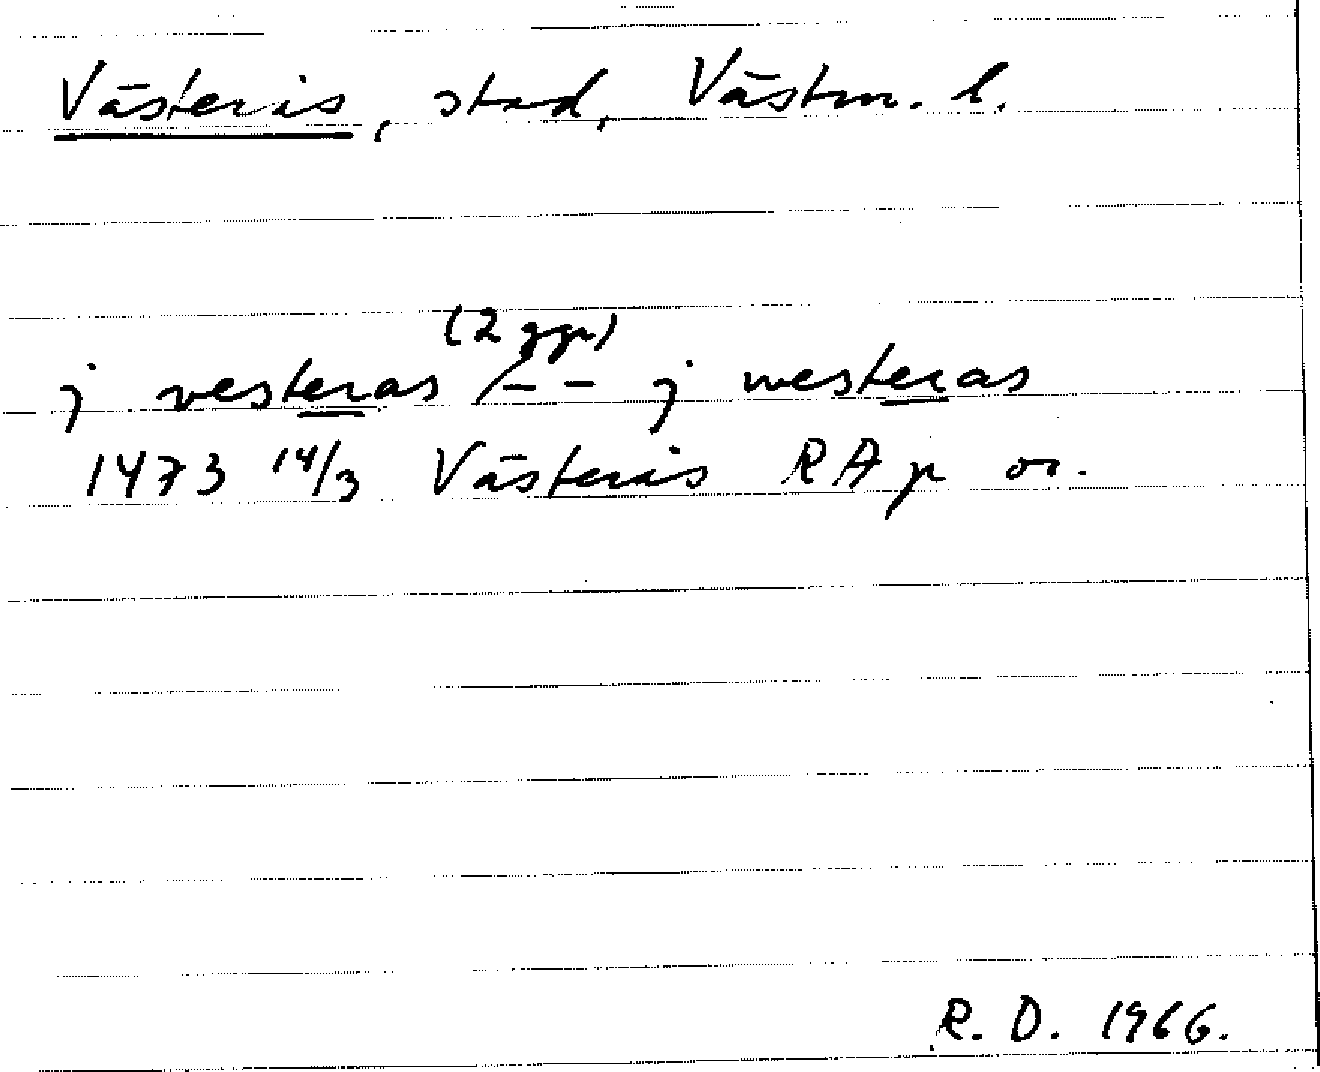 Västerås, stad, Västm. l.
(2 ggr)
j vesteras /- - j westeras
1473 14/3 Västerås RA p or.
R. D. 1966.